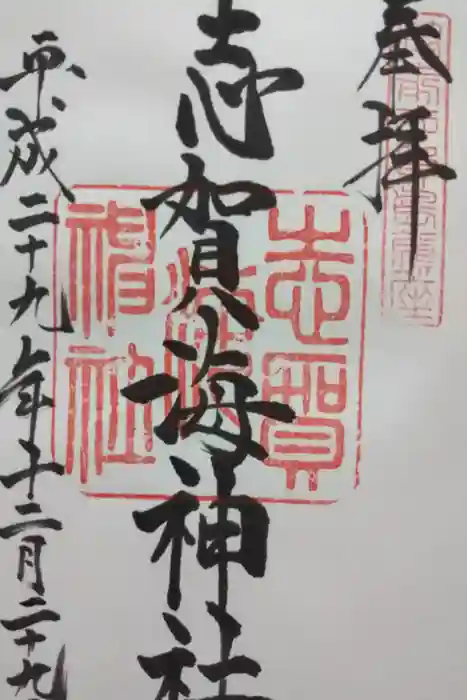 奉拝
志賀海神社
平成二十九年十二月二十九
志賀
海
神社